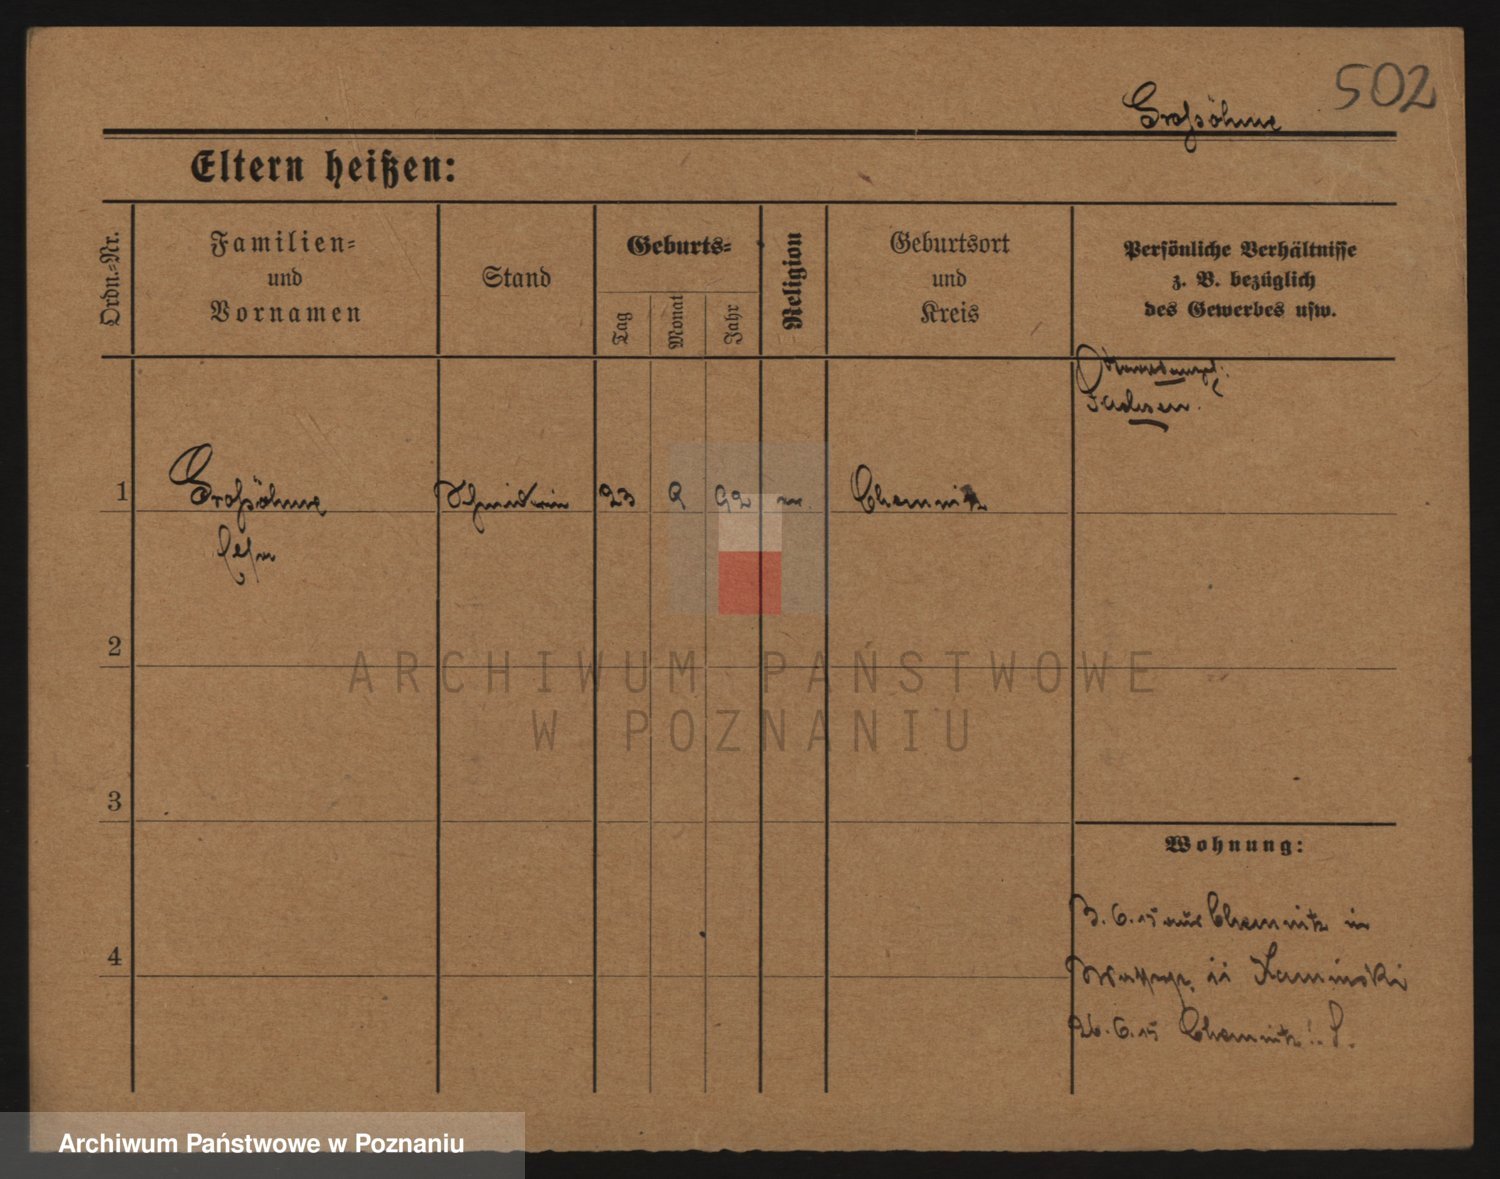 502
Großöhme
Eltern heißen:
Ordn.-Nr.
Familien-
und
Vornamen
Stand
Geburts-
Tag
Monat
Jahr
Religion
Geburtsort
und
Kreis
Persönliche Verhältnisse
z. B. bezüglich
des Gewerbes usw.
Sachsen.
1
Großöhme
23
92
Chemnitz
2
3
4
Wohnung:
3. 6. 15 aus Chemnitz in
Kaminski
26. 6. 15 Chemnitz
ARCHIWUM PAŃSTWOWE
W POZNANIU
Archiwum Państwowe w Poznaniu